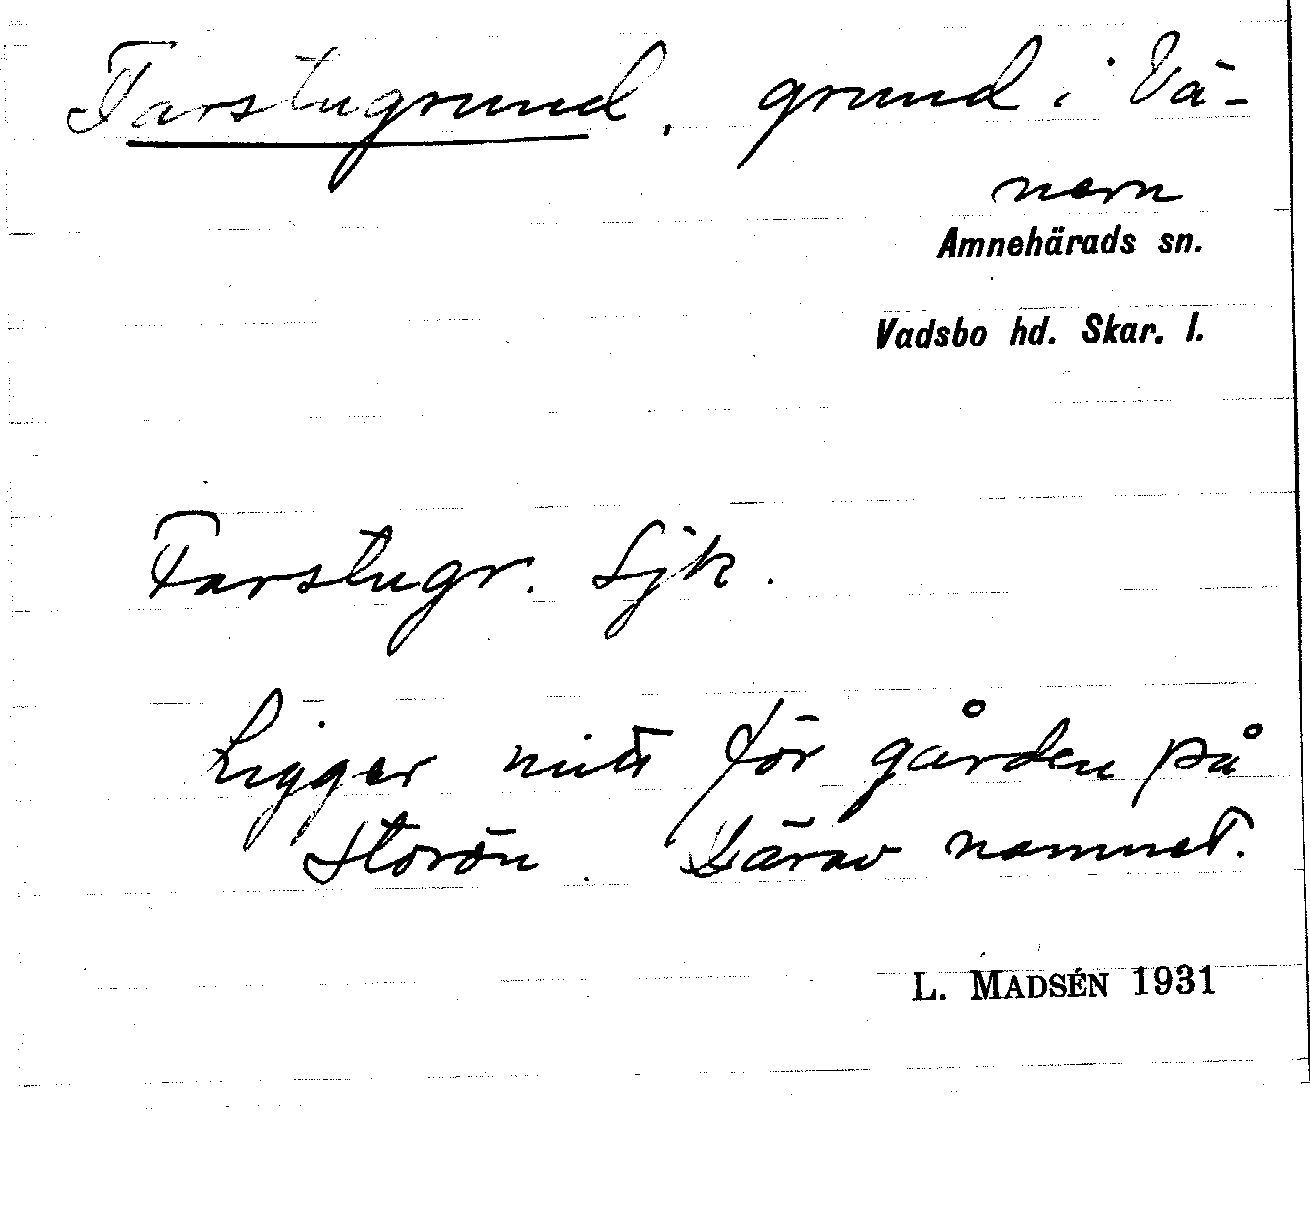 Farstugrund, grund i Vä-
nern
Amnehärads sn.
Vadsbo hd. Skar. l.
Farstugr. Sjk.
Ligger mitt för gården på
Storön. Därav namnet.
L. MADSÉN 1931